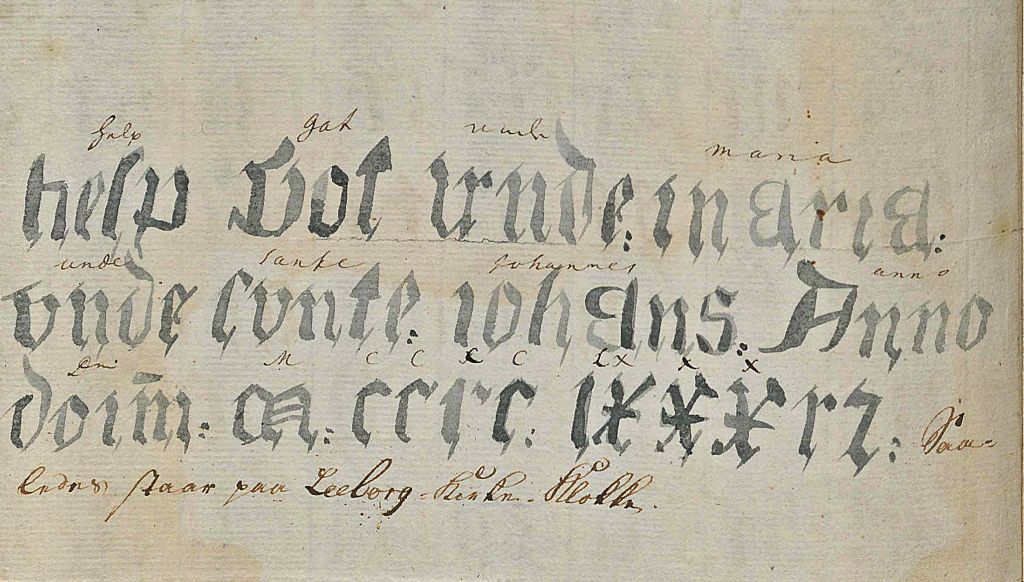 help gat unde maria
help Got unde: maria:
unde sante Johannes anno
vnde sunte: iohans: Anno
Dni M C C C C LX X X
doim̄: m: cccc: lxxx
Saa-
ledes staar paa Leeborg-Kirke-Klokke.